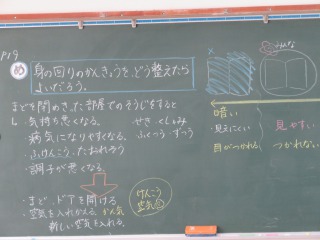 P19
め 身の回りのかんきょうを、どう整えたら
よいだろう。
まどを閉めきった部屋でのそうじをすると
・気持ち悪くなる。 せき・くしゃみ
病気になりやすくなる。ふくつう・ずつう
・ふけんこう・たおれろう
・調子が悪くなる
・まど、ドアを開ける
・空気を入れかえる かん気
新しい空気を入れる。
けんこう
空気
×
みんな
暗い
・見えにくい
目がつかれる
見やすい
つかれない